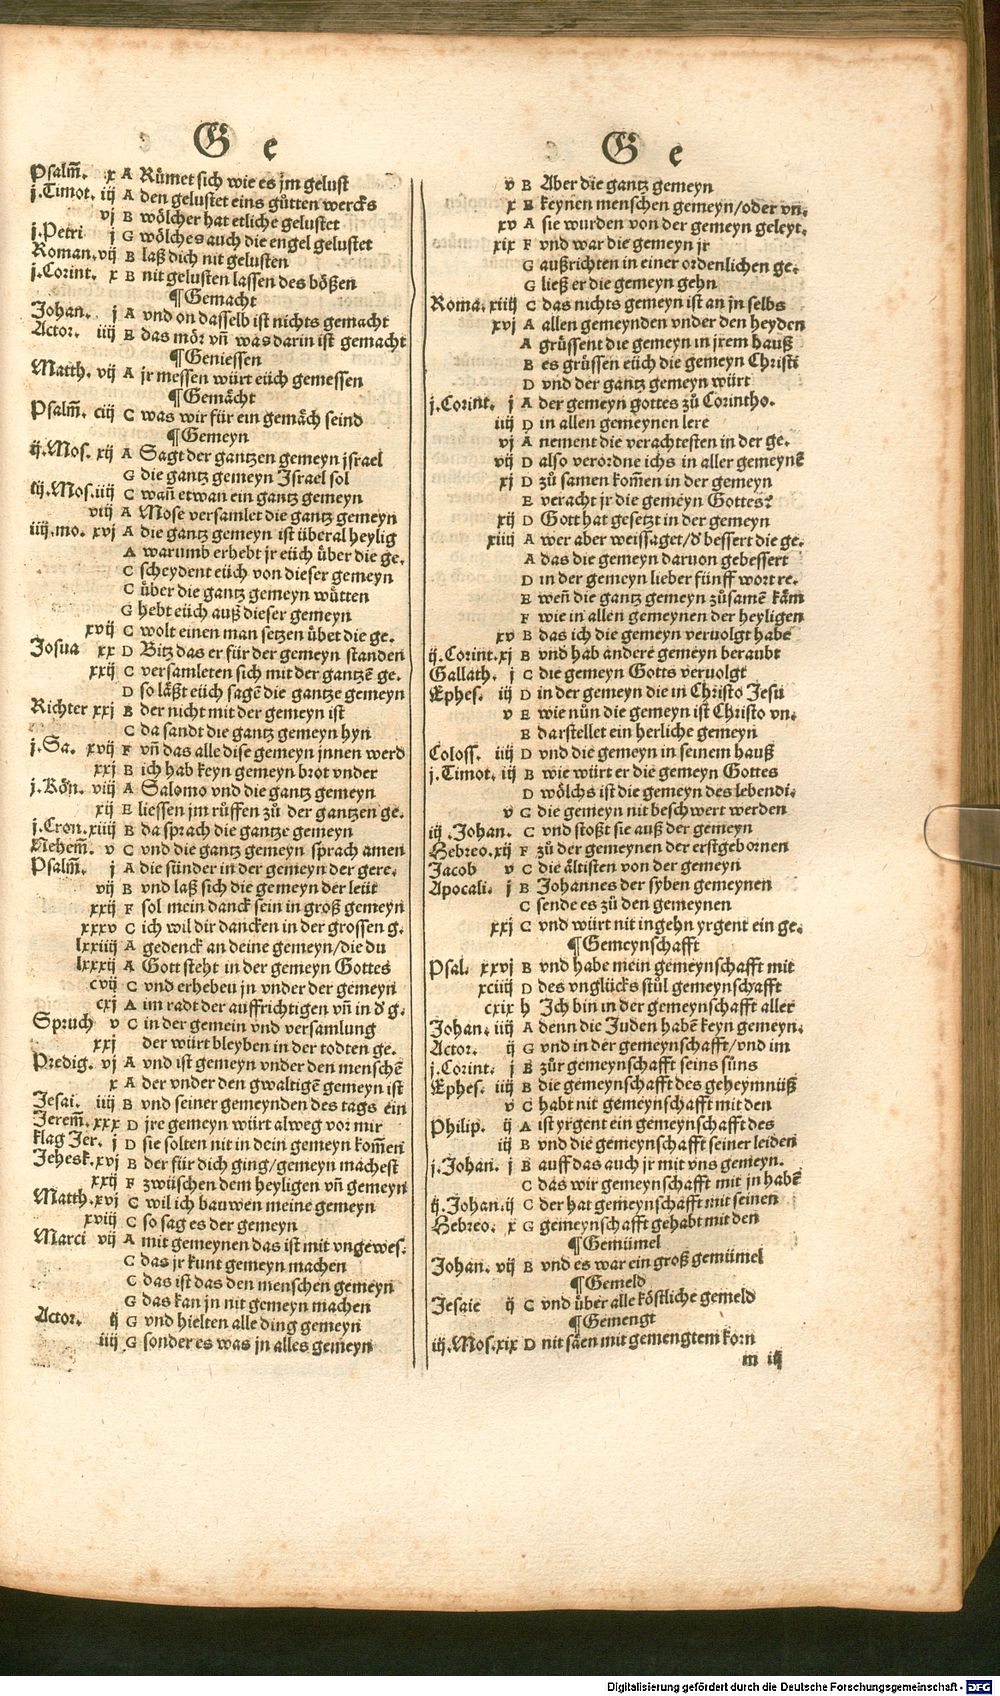 G e
Psalm̃. x A Růmet sich wie es jm gelust
j.Timot. iij A den gelustet eins gůtten wercks
vj B wölcher hat etliche gelustet
j.Petri j G wölches auch die engel gelustet
Roman. vij B laß dich nit gelusten
j.Corint. x B nit gelusten lassen des bößen
¶Gemacht
Johan. j A vnd on dasselb ist nichts gemacht
Actor. iiij E das mör vñ was darin ist gemacht
¶Geniessen
Matth. vij A jr messen würt eüch gemessen
¶Gemächt
Psalm̃. ciij C was wir für ein gemäch seind
¶Gemeyn
ij.Mos. xij A Sagt der gantzen gemeyn jsrael
G die gantz gemeyn Israel sol
iij.Mos. iiij C wañ etwan ein gantz gemeyn
viij A Mose versamlet die gantz gemeyn
iiij.mo. xvj A die gantz gemeyn ist überal heylig
A warumb erhebt jr eüch über die ge.
C scheydent eüch von dieser gemeyn
C über die gantz gemeyn wütten
G hebt eüch auß dieser gemeyn
xvij C wolt einen man setzen übet die ge.
Josua xx D Bitz das er für der gemeyn standen
xxij C versamleten sich mit der gantzẽ ge.
D so läßt eüch sagẽ die gantze gemeyn
Richter xxj B der nicht mit der gemeyn ist
C da sandt die gantz gemeyn hyn
j.Sa. xvij F vñ das alle dise gemeyn jnnen werd
xxj B ich hab keyn gemeyn brot vnder
j.Kön. viij A Salomo vnd die gantz gemeyn
xij E liessen jm rüffen zů der gantzen ge.
j.Cron. xiiij B da sprach die gantze gemeyn
Nehem̃. v C vnd die gantz gemeyn sprach amen
Psalm̃. j A die sünder in der gemeyn der gere.
vij B vnd laß sich die gemeyn der leüt
xxij F sol mein danck sein in groß gemeyn
xxxv C ich wil dir dancken in der grossen g.
lxxiiij A gedenck an deine gemeyn/die du
lxxxij A Gott steht in der gemeyn Gottes
cvij C vnd erheben jn vnder der gemeyn
cxj A im radt der auffrichtigen vñ in d' g.
Spruch v C in der gemein vnd versamlung
xxj der würt bleyben in der todten ge.
Predig. vj A vnd ist gemeyn vnder den menschẽ
x A der vnder den gwaltigen gemeyn ist
Jesai. iiij B vnd seiner gemeynden des tags ein
Jerem̃. xxx D jre gemeyn würt alweg vor mir
klag Jer. j D sie solten nit in dein gemeyn kom̃en
Jehesk. xvj B der für dich ging/gemeyn machest
xxij F zwüschen dem heyligen vñ gemeyn
Matth. xvj C wil ich bauwen meine gemeyn
xviij C so sag es der gemeyn
Marci vij A mit gemeynen das ist mit vngewes.
C das jr kunt gemeyn machen
C das ist das den menschen gemeyn
G das kan jn nit gemeyn machen
Actor. ij G vnd hielten alle ding gemeyn
iiij G sonder es was jn alles gemeyn
G e
v B Aber die gantz gemeyn
x B keynen menschen gemeyn/oder vn.
xv A sie wurden von der gemeyn geleyt.
xix F vnd war die gemeyn jr
G außrichten in einer ordenlichen ge.
G ließ er die gemeyn gehn
Roma. xiiij C das nichts gemeyn ist an jn selbs
xvj A allen gemeynden vnder den heyden
A grüssent die gemeyn in jrem hauß
B es grüssen eüch die gemeyn Christi
D vnd der gantz gemeyn würt
j.Corint. j A der gemeyn gottes zů Corintho.
iiij D in allen gemeynen lere
vj A nement die verachtesten in der ge.
vij D also verordne ichs in aller gemeynẽ
xj D zů samen kom̃en in der gemeyn
E veracht jr die gemeyn Gottes?
xij D Gott hat gesetzt in der gemeyn
xiiij A wer aber weissaget/d' bessert die ge.
A das die gemeyn daruon gebessert
D in der gemeyn lieber fünff wort re.
E weñ die gantz gemeyn zůsamẽ käm
F wie in allen gemeynen der heyligen
xv B das ich die gemeyn veruolgt habe
ij.Corint. xj B vnd hab andere gemeyn beraubt
Gallath. j C die gemeyn Gotts veruolgt
Ephes. iij D in der gemeyn die in Christo Jesu
v E wie nůn die gemeyn ist Christo vn.
E darstellet ein herliche gemeyn
Coloss. iiij D vnd die gemeyn in seinem hauß
j.Timot. iij B wie würt er die gemeyn Gottes
D wölchs ist die gemeyn des lebendi.
v G die gemeyn nit beschwert werden
iij.Johan. C vnd stoßt sie auß der gemeyn
Hebreo. xij F zů der gemeynen der erstgebornen
Jacob v C die ältisten von der gemeyn
Apocali. j B Johannes der syben gemeynen
C sende es zů den gemeynen
xxj C vnd würt nit ingehn yrgent ein ge.
¶Gemeynschafft
Psal. xxvj B vnd habe mein gemeynschafft mit
xciiij D des vnglücks stůl gemeynschafft
cxix h Ich bin in der gemeynschafft aller
Johan. iiij A denn die Juden habẽ keyn gemeyn.
Actor. ij G vnd in der gemeynschafft/vnd im
j.Corint. j B zůr gemeynschafft seins süns
Ephes. iij B die gemeynschafft des geheymnüß
v C habt nit gemeynschafft mit den
Philip. ij A ist yrgent ein gemeynschafft des
iij B vnd die gemeynschafft seiner leiden
j.Johan. j B auff das auch jr mit vns gemeyn.
C das wir gemeynschafft mit jn habẽ
ij.Johan. ij C der hat gemeynschafft mit seinen
Hebreo. x G gemeynschafft gehabt mit den
¶Gemümel
Johan. vij B vnd es war ein groß gemümel
¶Gemeld
Jesaie ij C vnd über alle köstliche gemeld
¶Gemengt
iij.Mos. xix D nit säen mit gemengtem korn
m iij
Digitalisierung gefördert durch die Deutsche Forschungsgemeinschaft - DFG